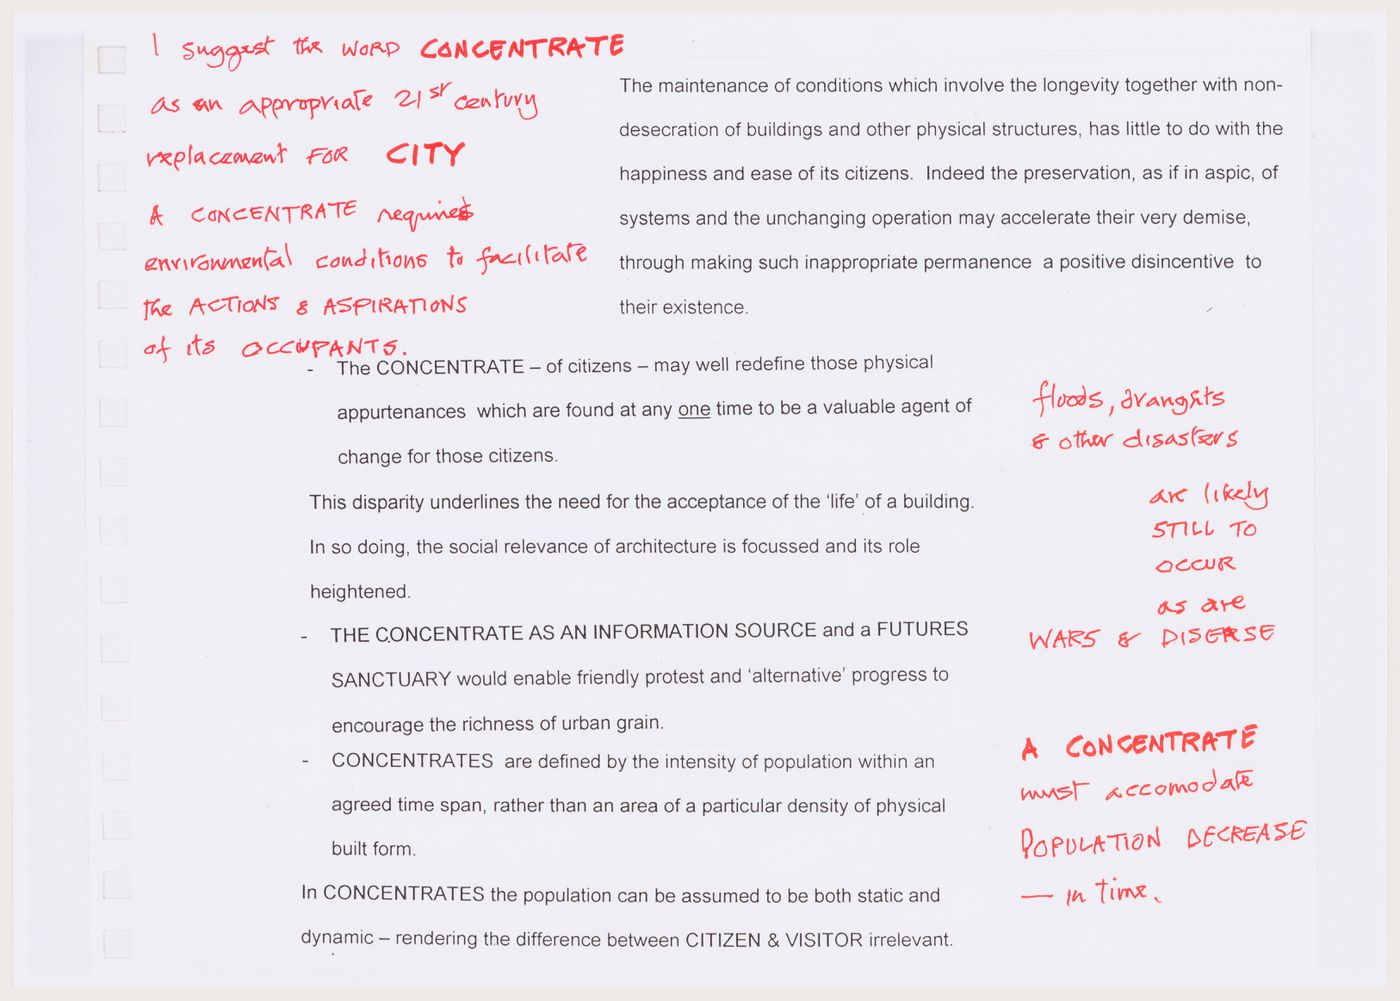 I suggest the WORD CONCENTRATE
as an appropriate 21st century
replacement FOR CITY
A CONCENTRATE requires
environmental conditions to facilitate
the ACTIONS & ASPIRATIONS
of its OCCUPANTS.
The maintenance of conditions which involve the longevity together with non-
desecration of buildings and other physical structures, has little to do with the
happiness and ease of its citizens. Indeed the preservation, as if in aspic, of
systems and the unchanging operation may accelerate their very demise,
through making such inappropriate permanence a positive disincentive to
their existence.
- The CONCENTRATE – of citizens – may well redefine those physical
appurtenances which are found at any one time to be a valuable agent of
change for those citizens.
This disparity underlines the need for the acceptance of the ‘life’ of a building.
In so doing, the social relevance of architecture is focussed and its role
heightened.
- THE CONCENTRATE AS AN INFORMATION SOURCE and a FUTURES
SANCTUARY would enable friendly protest and ‘alternative’ progress to
encourage the richness of urban grain.
- CONCENTRATES are defined by the intensity of population within an
agreed time span, rather than an area of a particular density of physical
built form.
In CONCENTRATES the population can be assumed to be both static and
dynamic – rendering the difference between CITIZEN & VISITOR irrelevant.
floods, draughts
& other disasters
are likely
STILL TO
OCCUR
as are
WARS & DISEASE
A CONCENTRATE
must accomodate
POPULATION DECREASE
— in time.